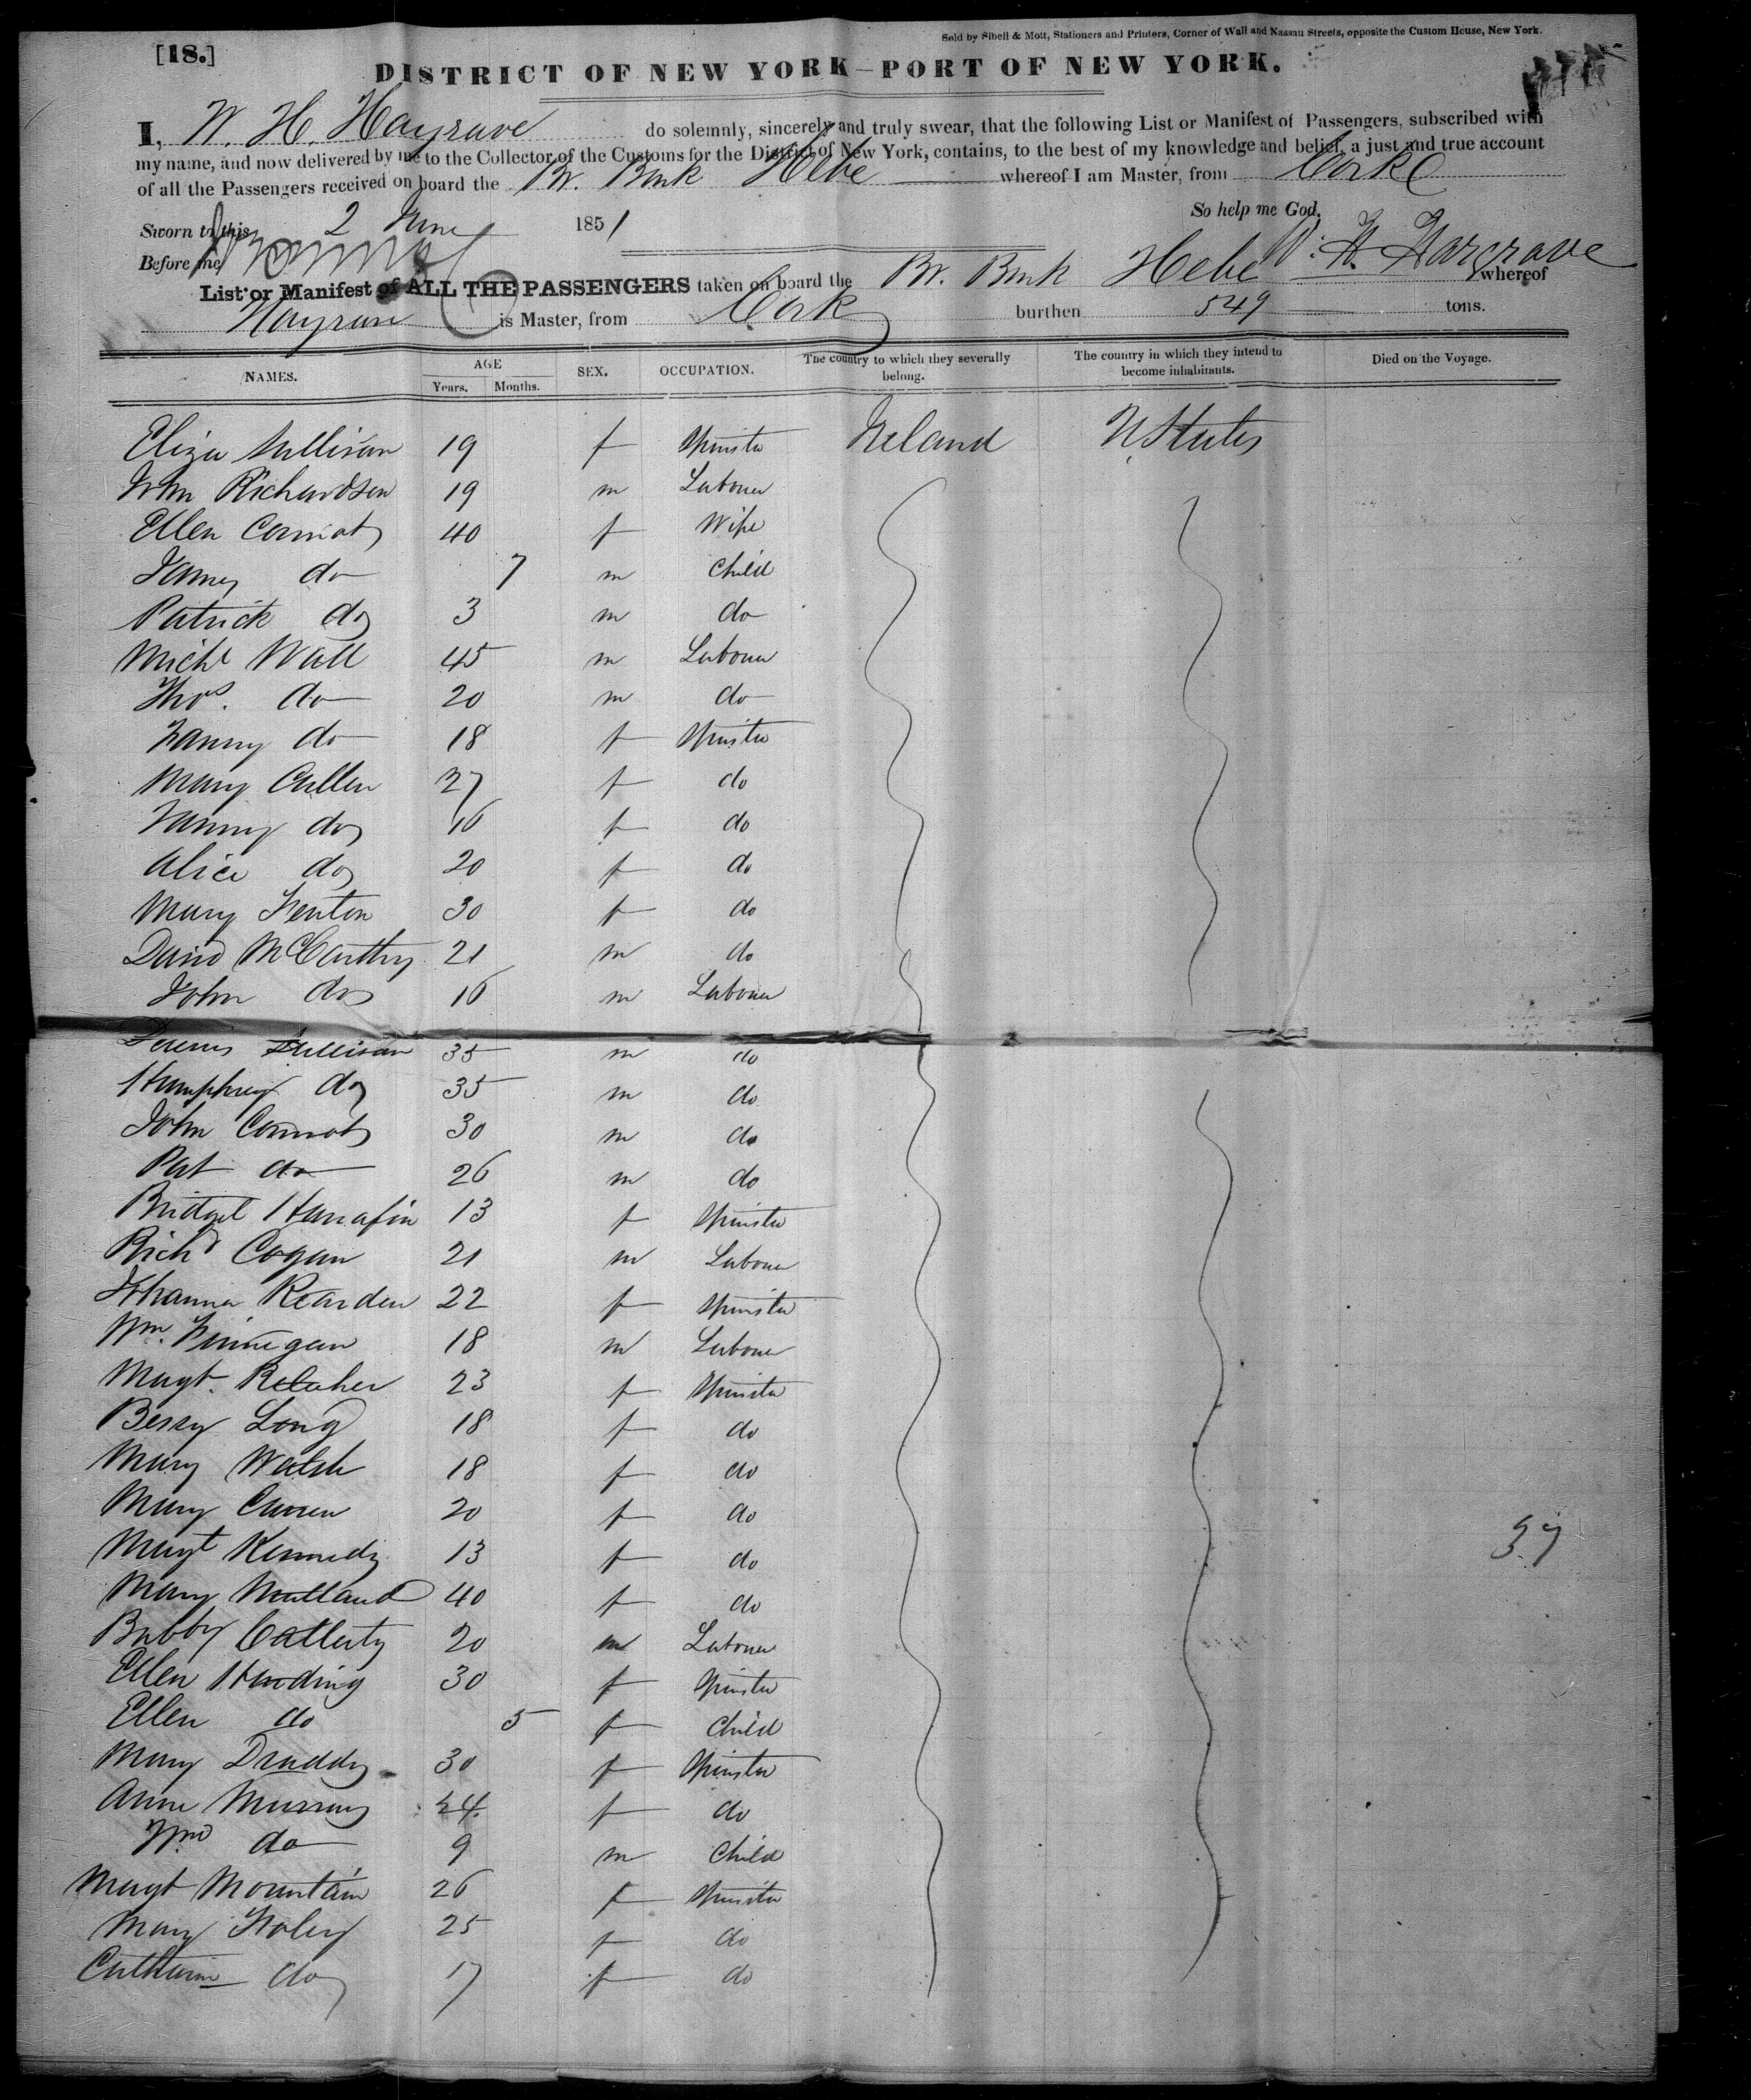 Sold by Sibell & Mott, Stationers and Printers, Corner of Wall and Nassau Streets, opposite the Custom House, New York.
[18.]
DISTRICT OF NEW YORK—PORT OF NEW YORK.
I, W. H. Hargrave do solemnly, sincerely and truly swear, that the following List or Manifest of Passengers, subscribed with
my name, and now delivered by me to the Collector of the Customs for the District of New York, contains, to the best of my knowledge and belief, a just and true account
of all the Passengers received on board the Br. Bark Hebe whereof I am Master, from Cork
So help me God.
Sworn to this 2 June 1851
W. H. Hargrave
Before me
List or Manifest of ALL THE PASSENGERS taken on board the Br. Bark Hebe whereof
Hargrave is Master, from Cork burthen 549 tons.
NAMES. AGE Years. Months. SEX. OCCUPATION. The country to which they severally belong. The country in which they intend to become inhabitants. Died on the Voyage.
Eliza Sullivan 19 f Spinster Ireland U. States
John Richardson 19 m Labourer
Ellen 40 f Wife
James do 7 m Child
Patrick do 3 m do
Michl Wall 45 m Labourer
Thos. do 20 m do
Fanny do 18 f Spinster
Mary Cullen 27 f do
Fanny do 16 f do
Alice do 20 f do
Mary Fenton 30 f do
David McCarthy 21 m do
John do 16 m Labourer
Dennis Sullivan 35 m do
Humphrey do 35 m do
John 30 m do
Pat do 26 m do
Bridget Hanafin 13 f Spinster
Richd Cogan 21 m Labourer
Johanna Rearden 22 f Spinster
Wm. Finnegan 18 m Labourer
Magt. 23 f Spinster
Bessy Long 18 f do
Mary Walsh 18 f do
Mary 20 f do
Magt Kennedy 13 f do
Mary 40 f do
20 m Labourer
Ellen Harding 30 f Spinster
Ellen do 5 f Child
Mary Druddy 30 f Spinster
Anne Murray 24 f do
Wm do 9 m Child
Magt Mountain 26 f Spinster
Mary Foley 25 f do
Catharine do 17 f do
37